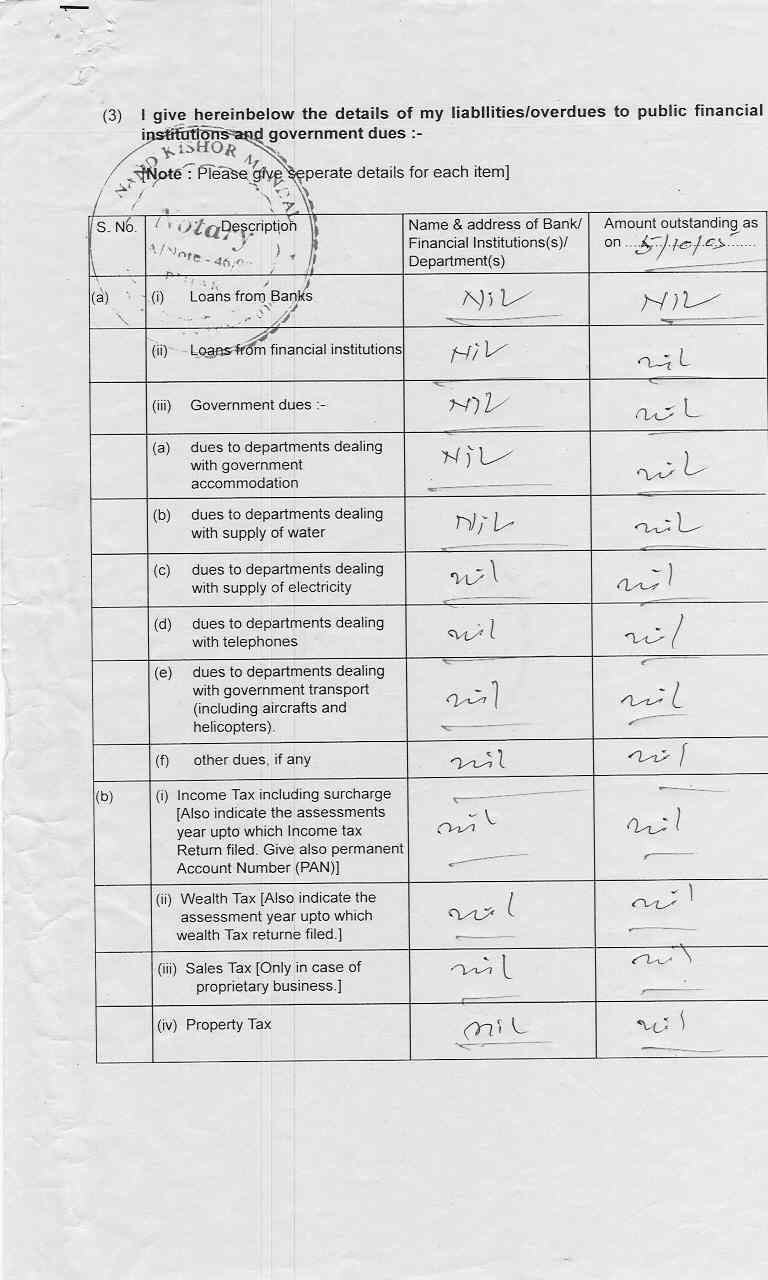 (3) I give hereinbelow the details of my liabllities/overdues to public financial
institutions and government dues :-
NAND KISHOR MANDAL
[Note : Please give seperate details for each item]
Notary
S. No. Description Name & address of Bank/ Financial Institutions(s)/ Department(s) Amount outstanding as on ....5/10/05........
(a) (i) Loans from Banks NiL NiL
(ii) Loans from financial institutions NiL nil
(iii) Government dues :- NIL nil
(a) dues to departments dealing
with government
accommodation NiL nil
(b) dues to departments dealing
with supply of water NiL nil
(c) dues to departments dealing
with supply of electricity nil nil
(d) dues to departments dealing
with telephones nil nil
(e) dues to departments dealing
with government transport
(including aircrafts and
helicopters). nil nil
(f) other dues, if any nil nil
(b) (i) Income Tax including surcharge
[Also indicate the assessments
year upto which Income tax
Return filed. Give also permanent
Account Number (PAN)] nil nil
(ii) Wealth Tax [Also indicate the
assessment year upto which
wealth Tax returne filed.] nil nil
(iii) Sales Tax [Only in case of
proprietary business.] nil nil
(iv) Property Tax nil nil